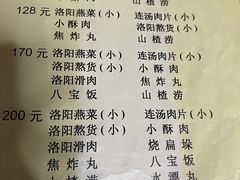 128 元 洛阳燕菜(小) 连汤肉片(小)
小酥肉 洛阳熬货(小)
焦炸丸 山楂涝
170 元 洛阳燕菜(小) 连汤肉片(小)
洛阳熬货(小) 小酥肉
洛阳滑肉 焦炸丸
八宝饭 山楂涝
200 元 洛阳燕菜(小) 连汤肉片(小)
洛阳熬货(小) 小酥肉
洛阳滑肉 烧扁垛
焦炸丸 八宝饭
山楂涝 水漂丸